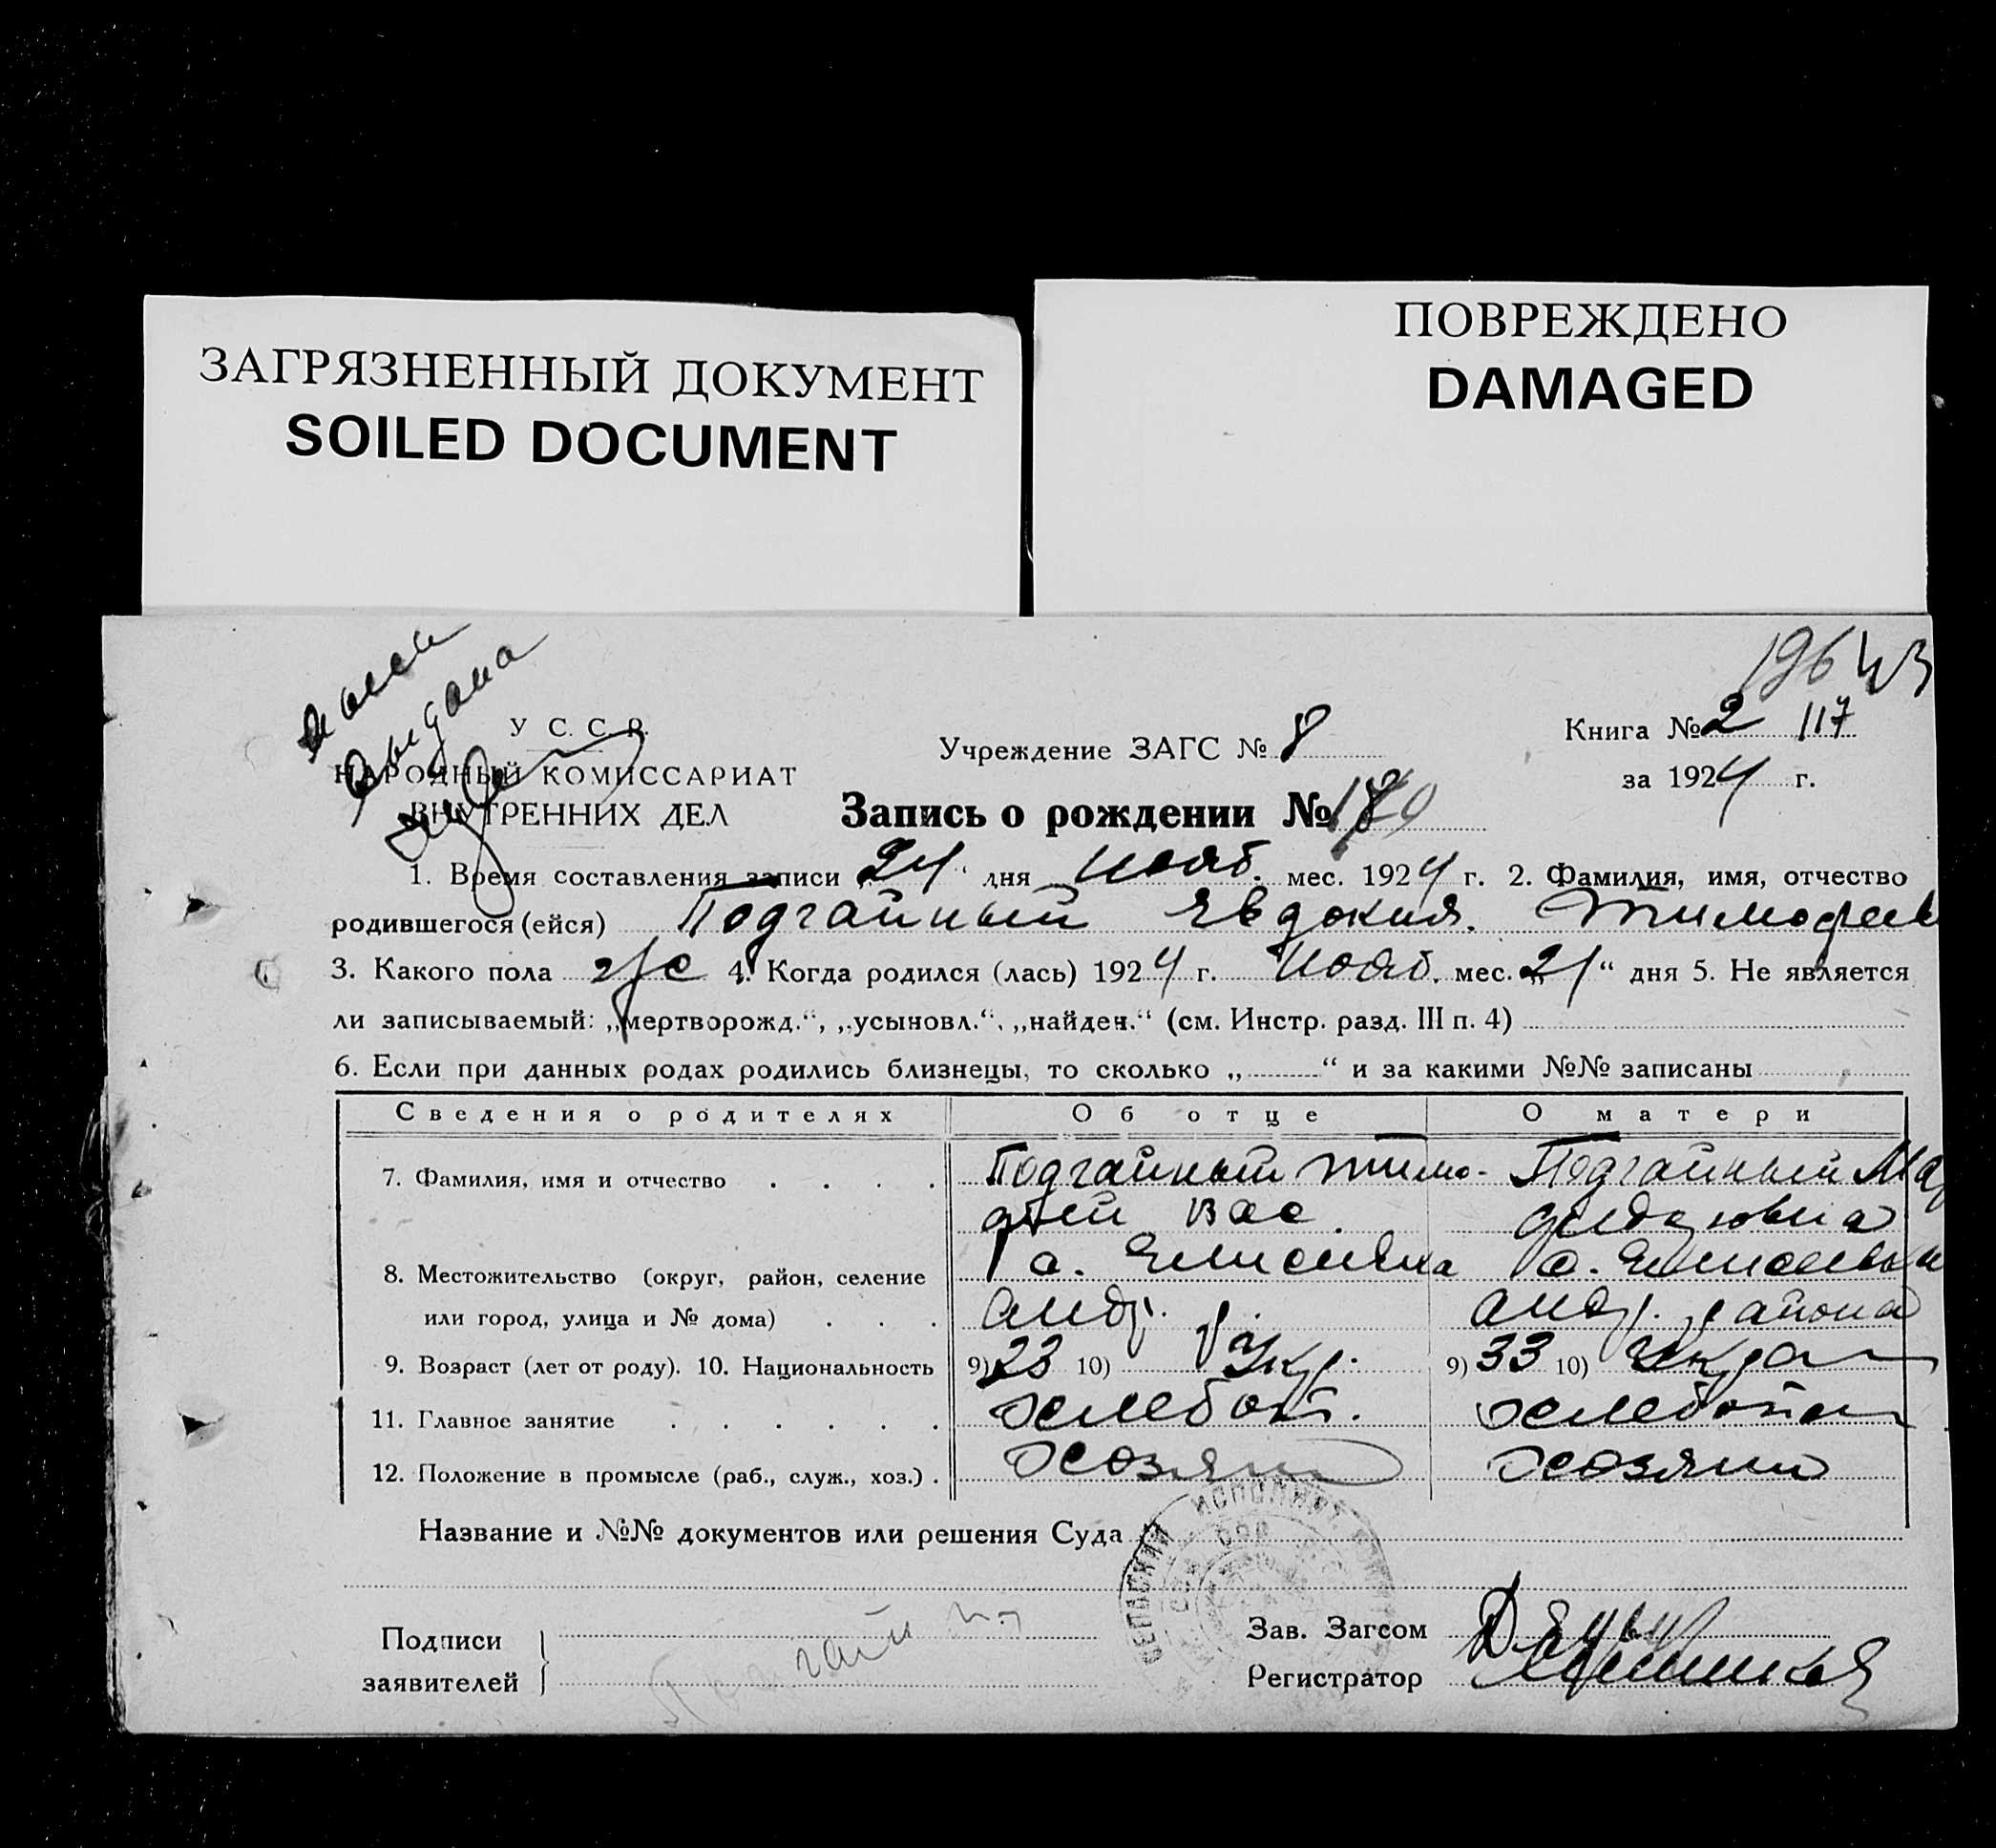 ЗАГРЯЗНЕННЫЙ ДОКУМЕНТ
SOILED DOCUMENT
ПОВРЕЖДЕНО
DAMAGED
выдана
У. С. С. Р.
НАРОДНЫЙ КОМИССАРИАТ
ВНУТРЕННИХ ДЕЛ
Учреждение ЗАГС № 8
Книга № 2 117
за 1924 г.
Запись о рождении №
1. Время составления записи „24“ дня нояб. мес. 1924 г. 2. Фамилия, имя, отчество
родившегося (ейся) Подгайный Явдокия. Тимофеев
3. Какого пола ж 4. Когда родился (лась) 1924 г. нояб. мес. „21“ дня 5. Не является
ли записываемый: „мертворожд.“, „усыновл.“, „найден.“ (см. Инстр. разд. III п. 4)
6. Если при данных родах родились близнецы, то сколько „ “ и за какими №№ записаны
Сведения о родителях Об отце О матери
7. Фамилия, имя и отчество . . . . Подгайный Тимо- Подгайный
фей Вас.
8. Местожительство (округ, район, селение с. с.
или город, улица и № дома) . . . Андр. р. Андр. района
9. Возраст (лет от роду). 10. Национальность 9) 23 10) Укр. 9) 33 10) Укра
11. Главное занятие . . . . . . хлебоп. хлебопа
12. Положение в промысле (раб., служ., хоз.) . хозяин хозяин
Название и №№ документов или решения Суда
Подписи
заявителей
Зав. Загсом
Регистратор